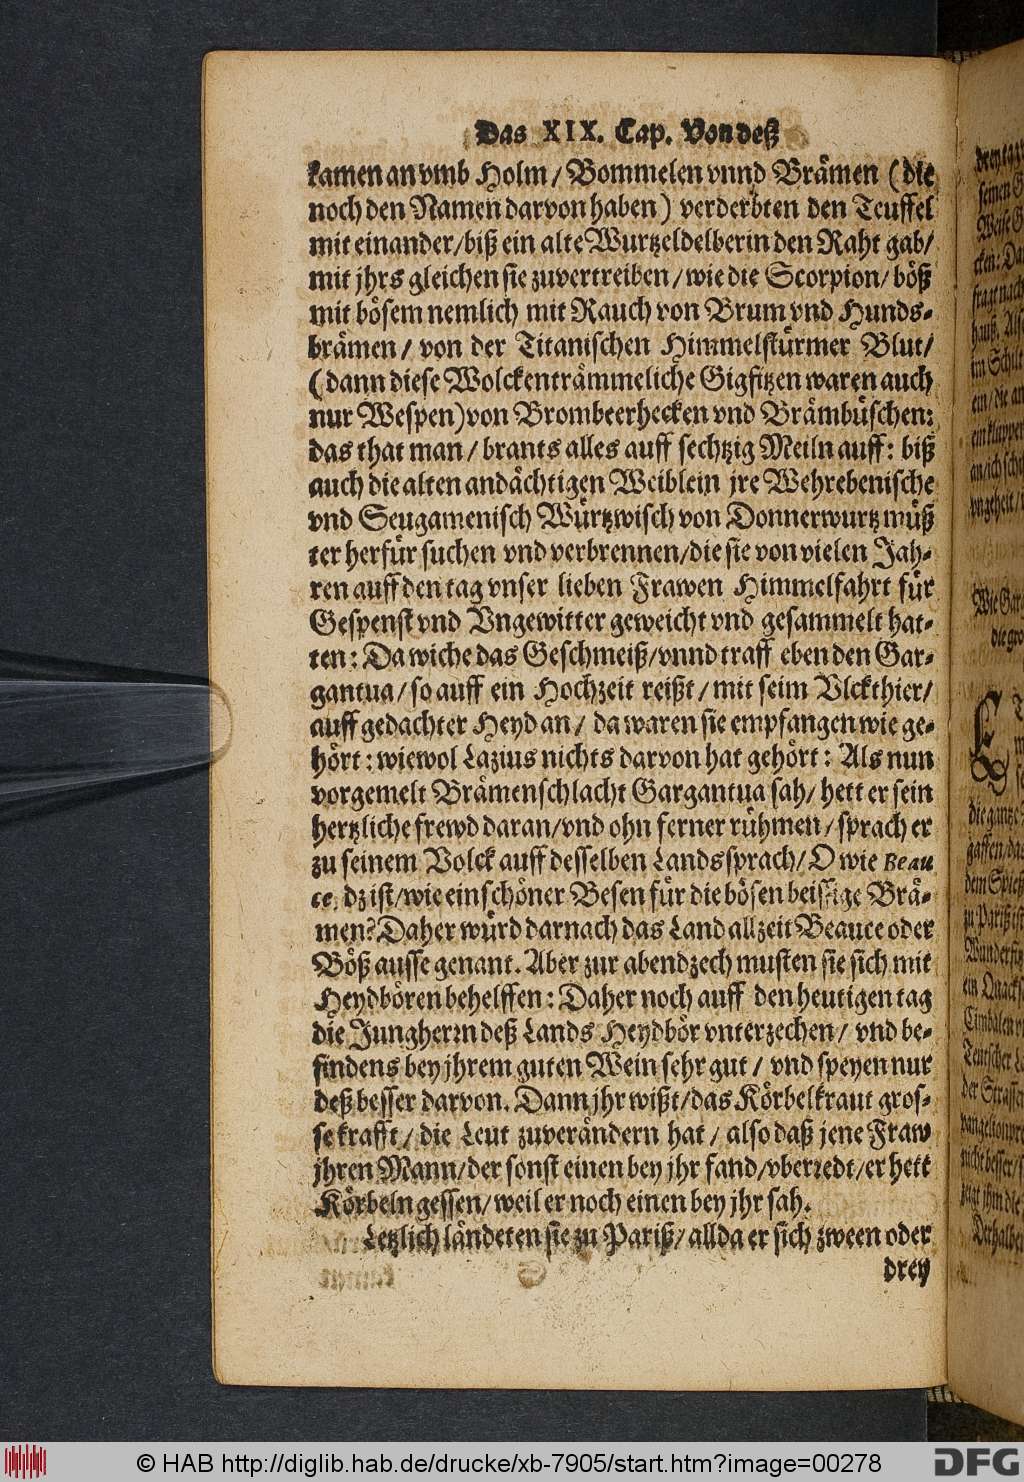 Das XIX. Cap. Von deß
kamen an vmb Holm / Bommelen vnnd Brämen (die
noch den Namen darvon haben) verderbten den Teuffel
mit einander/biß ein alte Wurtzeldelberin den Raht gab/
mit jhrs gleichen sie zuvertreiben / wie die Scorpion/ böß
mit bösem nemlich mit Rauch von Brum vnd Hunds-
brämen / von der Titanischen Himmelstürmer Blut/
(dann diese Wolckenträmmeliche Gigfitzen waren auch
nur Wespen) von Brombeerhecken vnd Brämbüschen:
das that man / brants alles auff sechtzig Meiln auff: biß
auch die alten andächtigen Weiblein jre Wehrebenische
vnd Seugamenisch Würtzwisch von Donnerwurtz müß
ter herfür suchen vnd verbrennen/die sie von vielen Jah-
ren auff den tag vnser lieben Frawen Himmelfahrt für
Gespenst vnd Vngewitter geweicht vnd gesammelt hat-
ten: Da wiche das Geschmeiß/vnnd traff eben den Gar-
gantua / so auff ein Hochzeit reißt / mit seim Vlckthier/
auff gedachter Heyd an / da waren sie empfangen wie ge-
hört: wiewol Lazius nichts darvon hat gehört: Als nun
vorgemelt Brämenschlacht Gargantua sah/ hett er sein
hertzliche frewd daran/vnd ohn ferner rühmen / sprach er
zu seinem Volck auff desselben Landssprach/ O wie Beau
ce, dz ist/wie ein schöner Besen für die bösen beissige Brä-
men? Daher würd darnach das Land allzeit Beauce oder
Böß ausse genant. Aber zur abendzech musten sie sich mit
Heydbören behelffen: Daher noch auff den heutigen tag
die Jungherrn deß Lands Heydbör vnterzechen / vnd be-
findens bey jhrem guten Wein sehr gut / vnd speyen nur
deß besser darvon. Dann jhr wißt/das Körbelkraut gros-
se krafft / die Leut zuverändern hat / also daß jene Fraw
jhren Mann/der sonst einen bey jhr fand/vberredt/er hett
Körbeln gessen/ weil er noch einen bey jhr sah.
Letzlich ländeten sie zu Pariß/ allda er sich zween oder
drey
© HAB http://diglib.hab.de/drucke/xb-7905/start.htm?image=00278
DFG